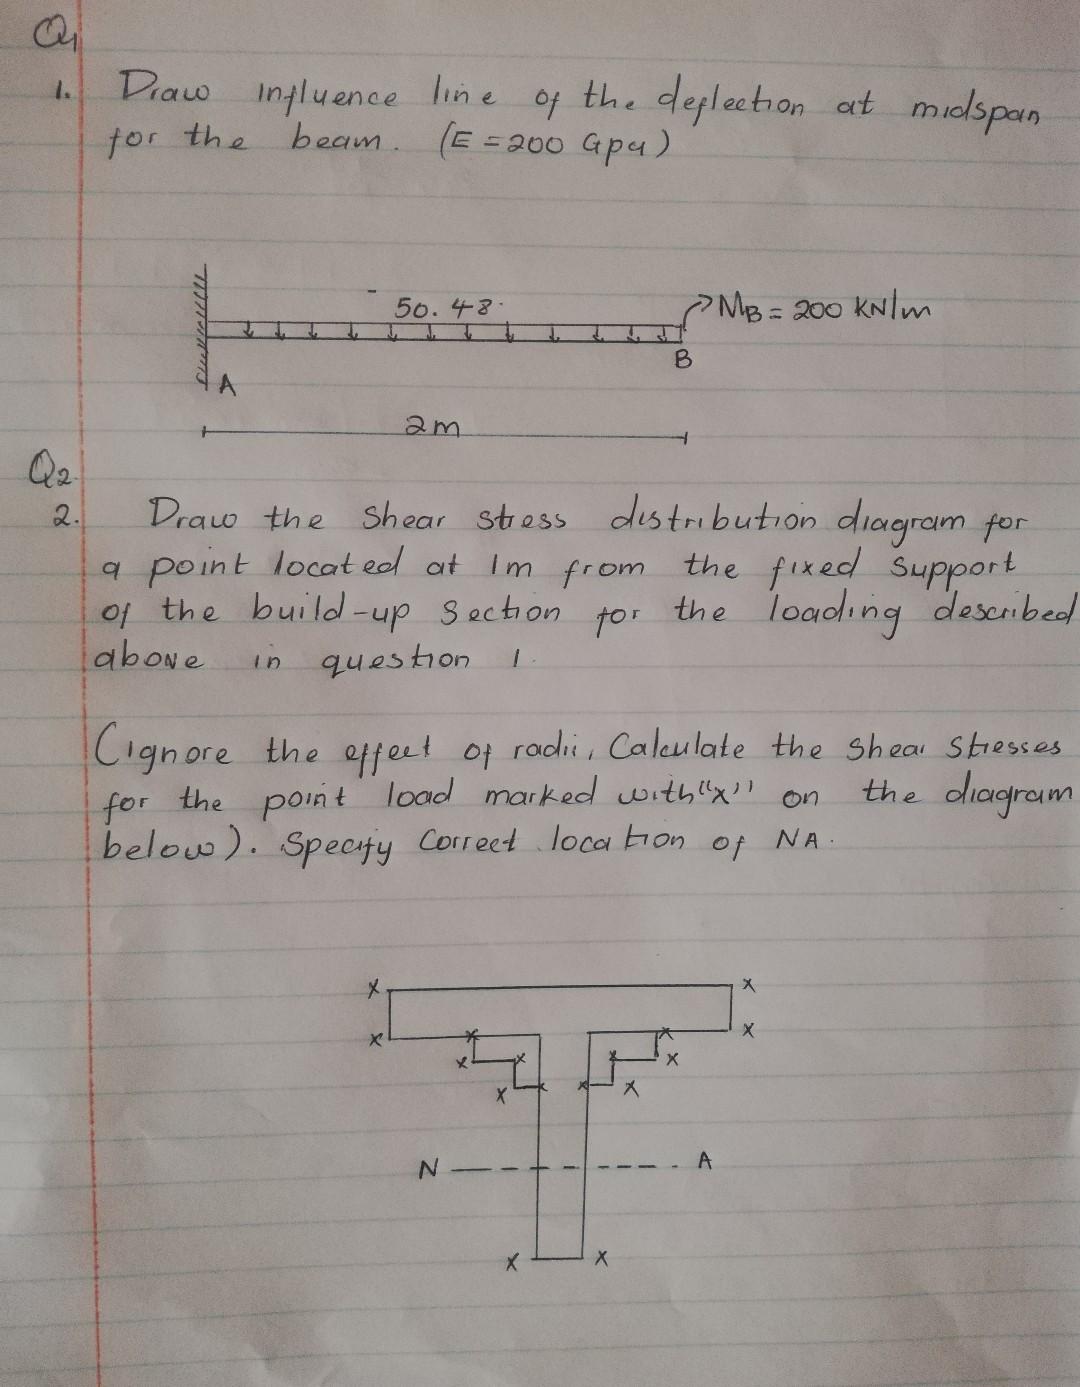 Q1
1. Draw influence line of the deflection at midspan
for the beam. (E = 200 Gpa)
50.48
MB = 200 KN/m
B
A
2m
Q2
2. Draw the shear stress distribution diagram for
a point located at 1m from the fixed support
of the build-up section for the loading described
above in question 1.
(ignore the effect of radii, Calculate the shear stresses
for the point load marked with "x" on the diagram
below). Specify correct location of NA.
x x
x x x x
x x x x
x x x x
N A
x x